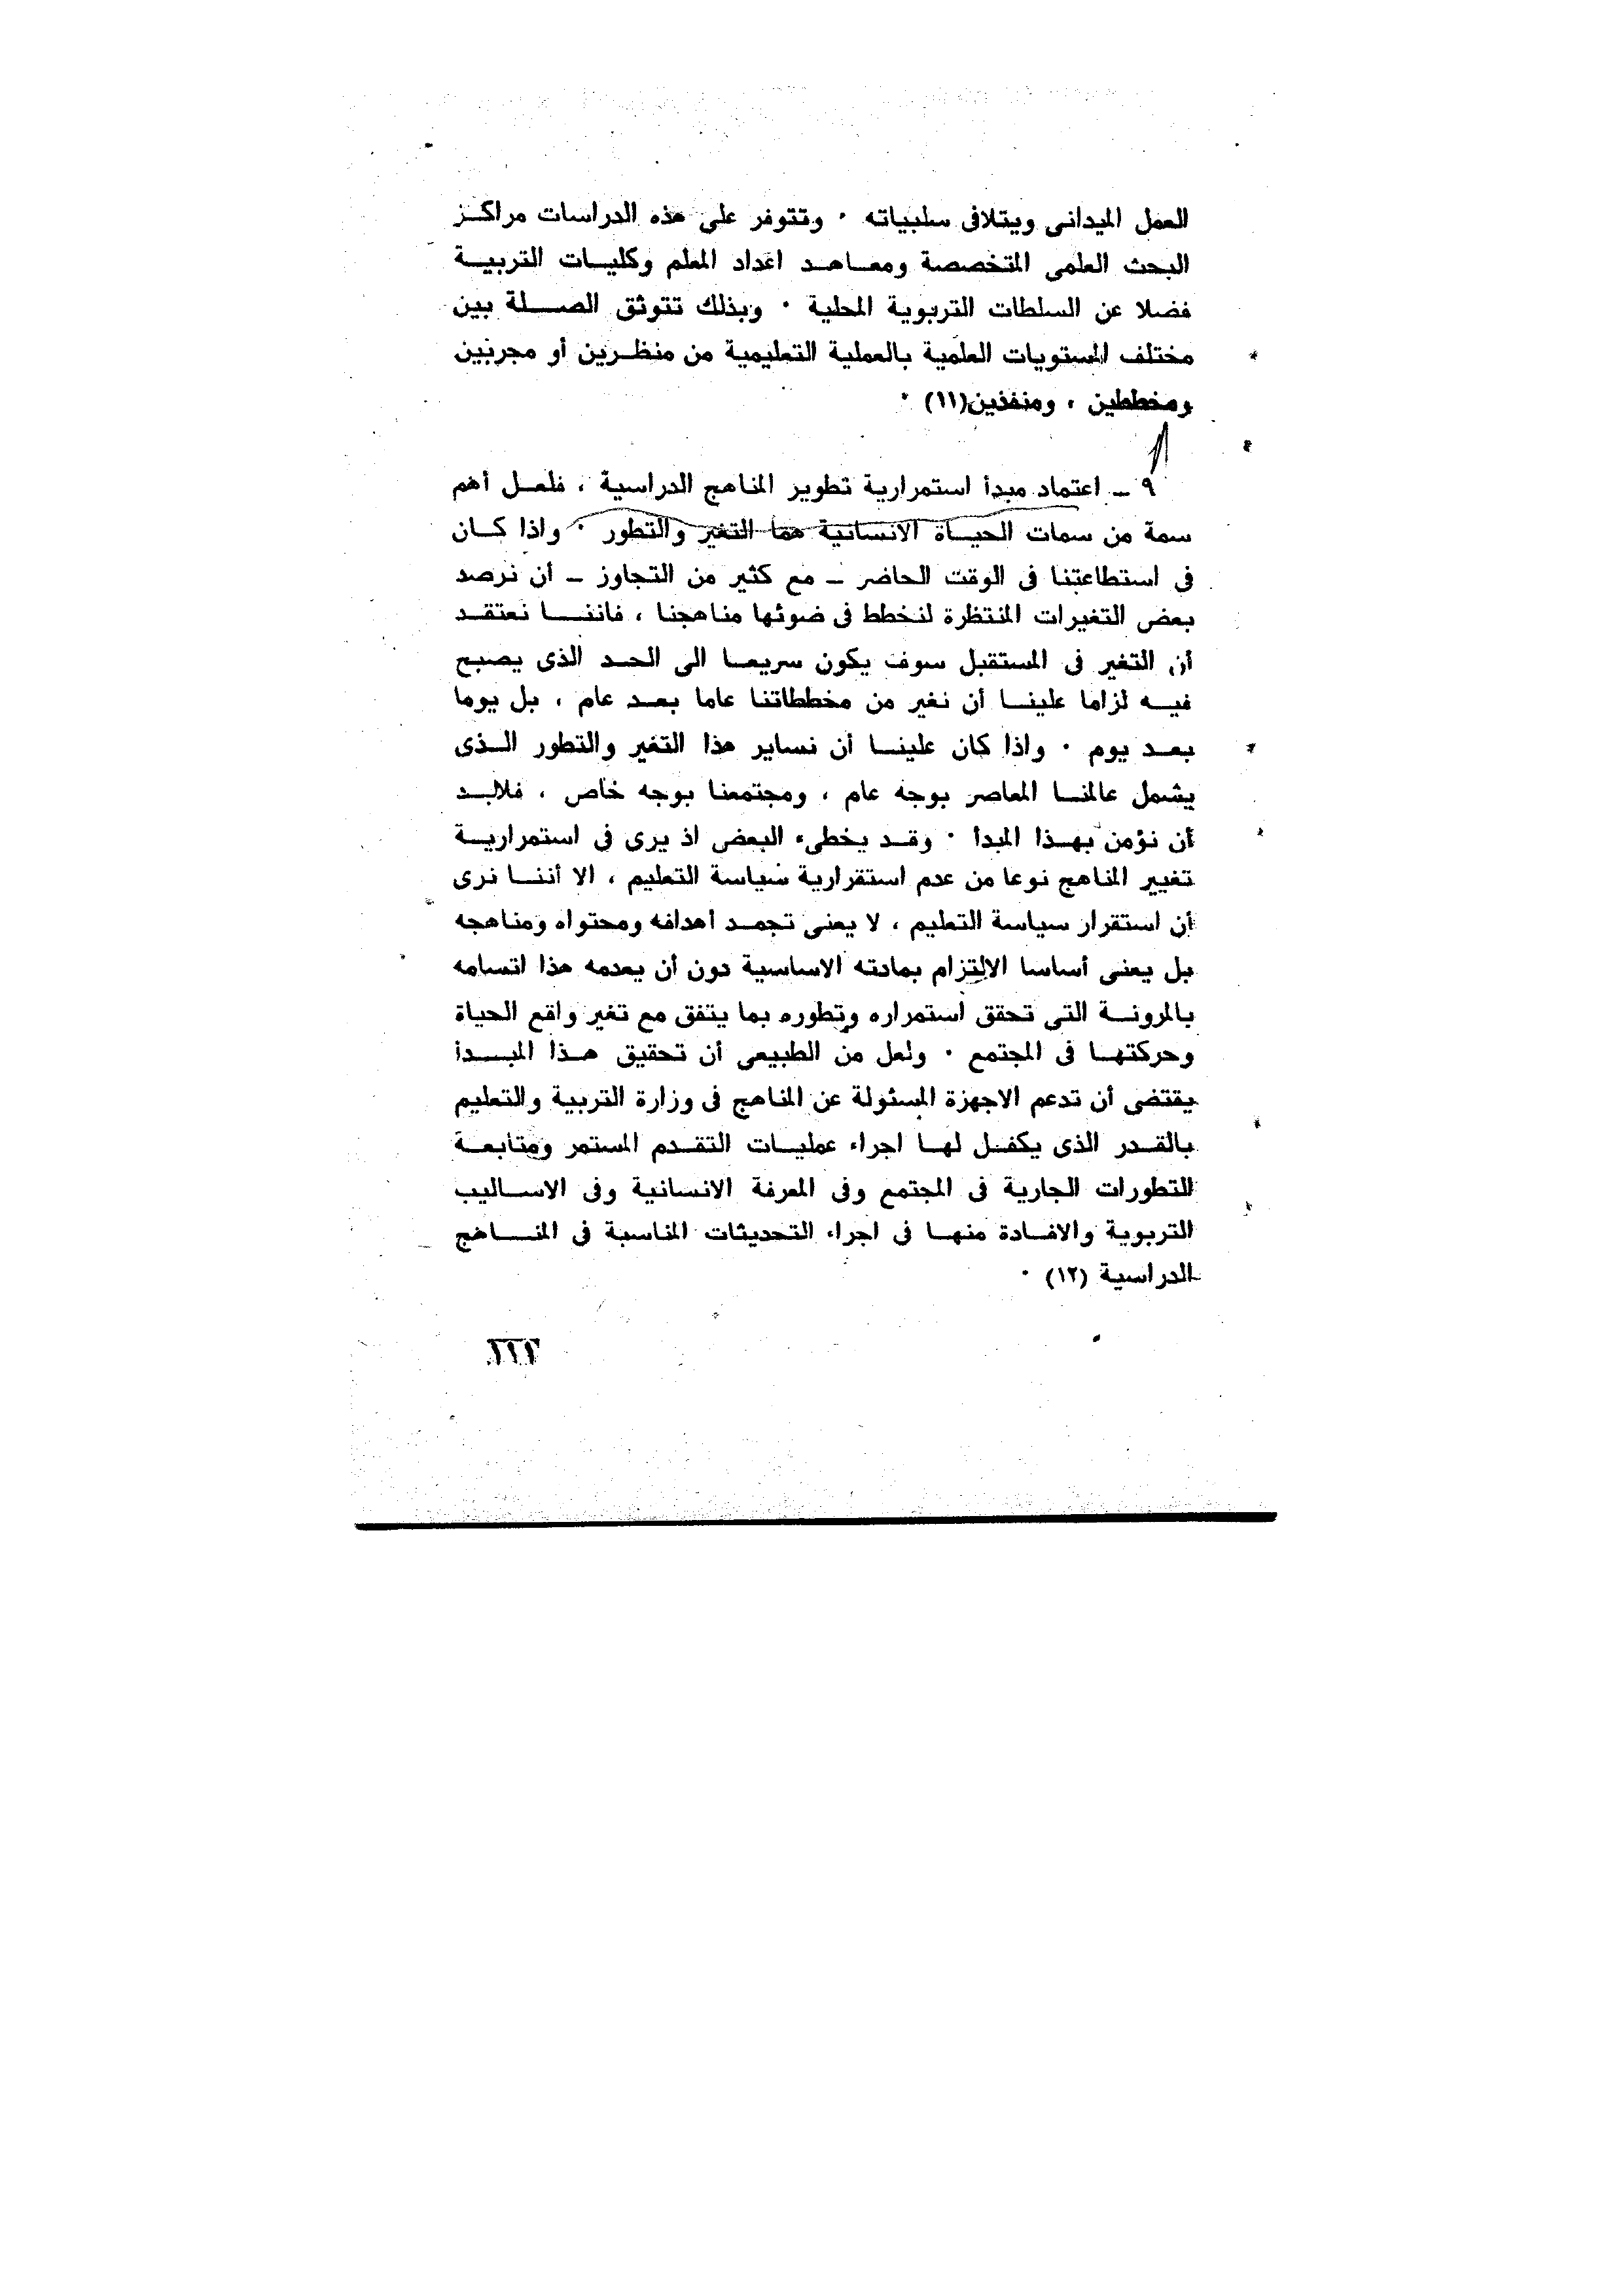 العمل الميدانى ويتلافى سلبياته ٠ وتتوفر على هذه الدراسات مراكــز
البحث العلمى المتخصصة ومعــاهــد اعداد المعلم وكليــات التربيــة
فضلا عن السلطات التربوية المحلية ٠ وبذلك تتوثق الصــــلة بين
مختلف المستويات العلمية بالعملية التعليمية من منظــرين أو مجربين
ومخططين ، ومنفذين(١١) ٠
٩ ــ اعتماد مبدأ استمرارية تطوير المناهج الدراسية ، فلعــل أهم
سمة من سمات الحيــاة الانسانية هما التغير والتطور ٠ واذا كــان
فى استطاعتنا فى الوقت الحاضر ــ مع كثير من التجاوز ــ أن نرصد
بعض التغيرات المنتظرة لنخطط فى ضوئها مناهجنا ، فاننــــا نعتقــد
أن التغير فى المستقبل سوف يكون سريعــا الى الحــد الذى يصبح
فيــه لزاما علينــا أن نغير من مخططاتنا عاما بعــد عام ، بل يوما
بعــد يوم ٠ واذا كان علينــا أن نساير هذا التغير والتطور الــذى
يشمل عالمنــا المعاصر بوجه عام ، ومجتمعنا بوجه خاص ، فلابــد
أن نؤمن بهــذا المبدأ ٠ وقــد يخطىء البعض اذ يرى فى استمراريــة
تغيير المناهج نوعا من عدم استقرارية سياسة التعليم ، الا أننــا نرى
أن استقرار سياسة التعليم ، لا يعنى تجمــد أهدافه ومحتواه ومناهجه
بل يعنى أساسا الالتزام بمادته الاساسية دون أن يعدمه هذا اتسامه
بالمرونــة التى تحقق استمراره وتطوره بما يتفق مع تغير واقع الحياة
وحركتهــا فى المجتمع ٠ ولعل من الطبيعى أن تحقيق هــذا المبــدأ
يقتضى أن تدعم الاجهزة المسئولة عن المناهج فى وزارة التربية والتعليم
بالقــدر الذى يكفــل لهــا اجراء عمليــات التقــدم المستمر ومتابعــة
التطورات الجارية فى المجتمع وفى المعرفة الانسانية وفى الاســاليب
التربوية والافــادة منهــا فى اجراء التحديثات المناسبة فى المنــــاهج
الدراسية (١٢) ٠